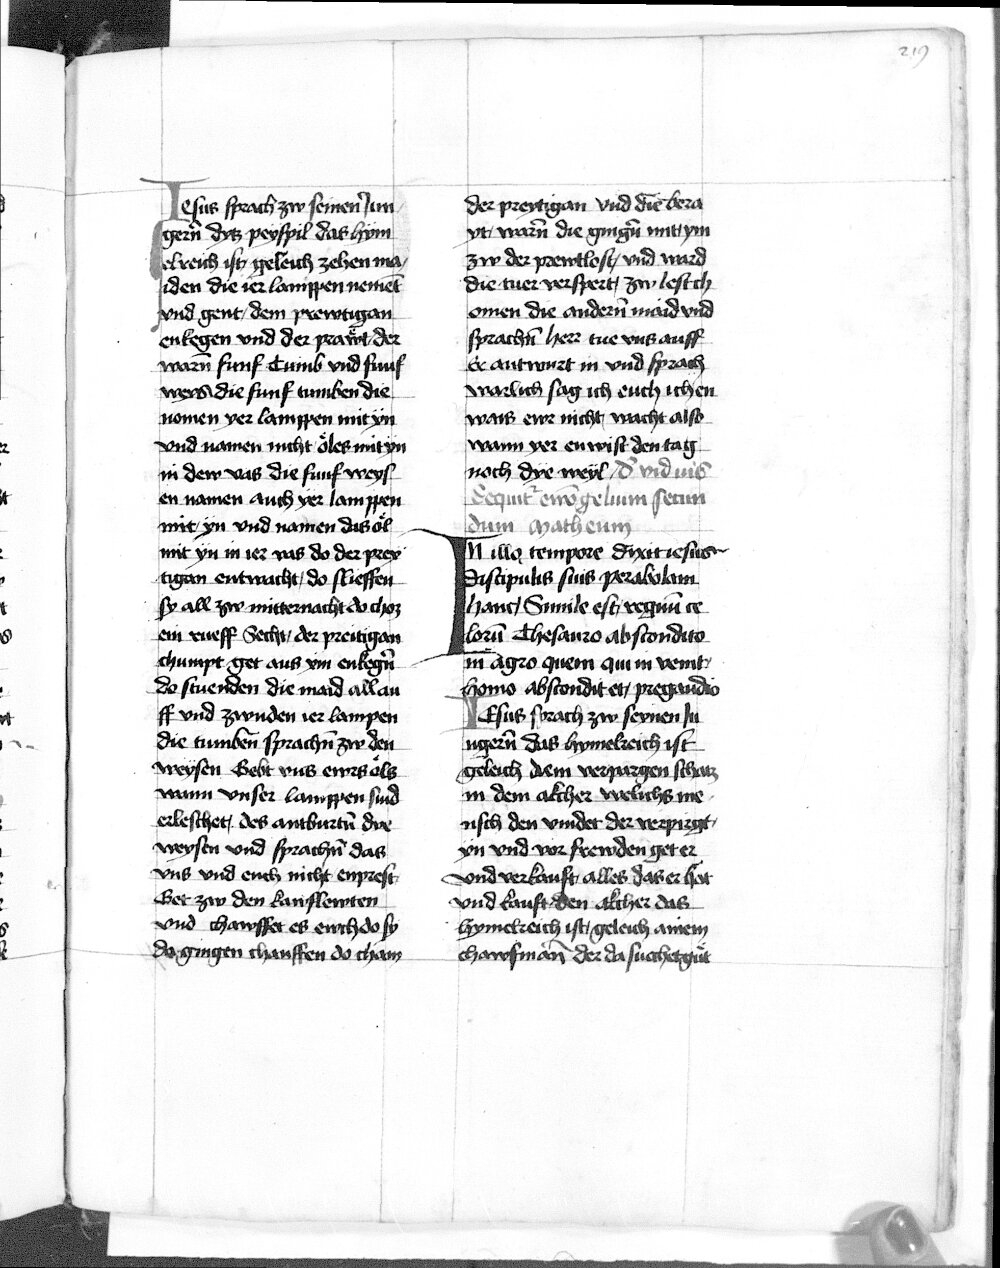 219
Jesus sprach zw seinen Jun
gern̄ dys peyspil das hym
elreich ist geleich zehen ma
iden die ier lamppen nement
vnd gent dem prewtigan
enkegen vnd der prawt der
warn̄ funf tumb vnd funf
weys die funf tumben die
nomen yer lamppen mit yn
vnd namen nicht öles mit yn
in dew vas die funf weys
en namen auch yer lamppen
mit yn vnd namen das öl
mit yn in ier vas do der prey
tigan entwacht do slieffen
sy all zw mitternacht do choz
ein rueff Secht der preitigan
chumpt get aus ym enkegn̄
do stuenden die maid all au
ff vnd zwnden ier lampen
die tumben̄ sprachn̄ zw den
weysen Gebt vns ewrs öls
wann vnser lamppen sind
erleschet des antburtn̄ dye
weysen vnd sprachn̄ das
vns vnd euch nicht enprest
Get zw den kauflewten
vnd chawffet es ewch do sy
do gingen chauffen do cham
der preytigan vnd die bera
yt warn̄ die gingn̄ mit ym
zw der prewtlost vnd ward
die tuer verspert zw lest ch
omen die andern̄ maid vnd
sprachn̄ herr tue vns auff
Er antwurt in vnd sprach
warlich sag ich euch ich en
wais ewr nicht wacht also
wann yer enwist den tag
noch dye weyl D̄ viduis
Sequitr ewōgelium secun
dum Matheum
In illo tempore dixit iesus
discipulis suis perabolam
hanc Simile est regnū ce
lorū Thesauro abscondito
in agro quem qui in venit
homo abscondit et pregaudio
Jesus sprach zw seynen Ju
ngern̄ das hymelreich ist
geleich dem verpargen schatz
in dem akcher welichs me
nsch den vindet der verpirgt
yn vnd vor frewden get er
vnd verkauft alles das er hat
vnd kauft den akcher das
hymelreich ist geleich ainem
chawfman̄ der da suechet gut